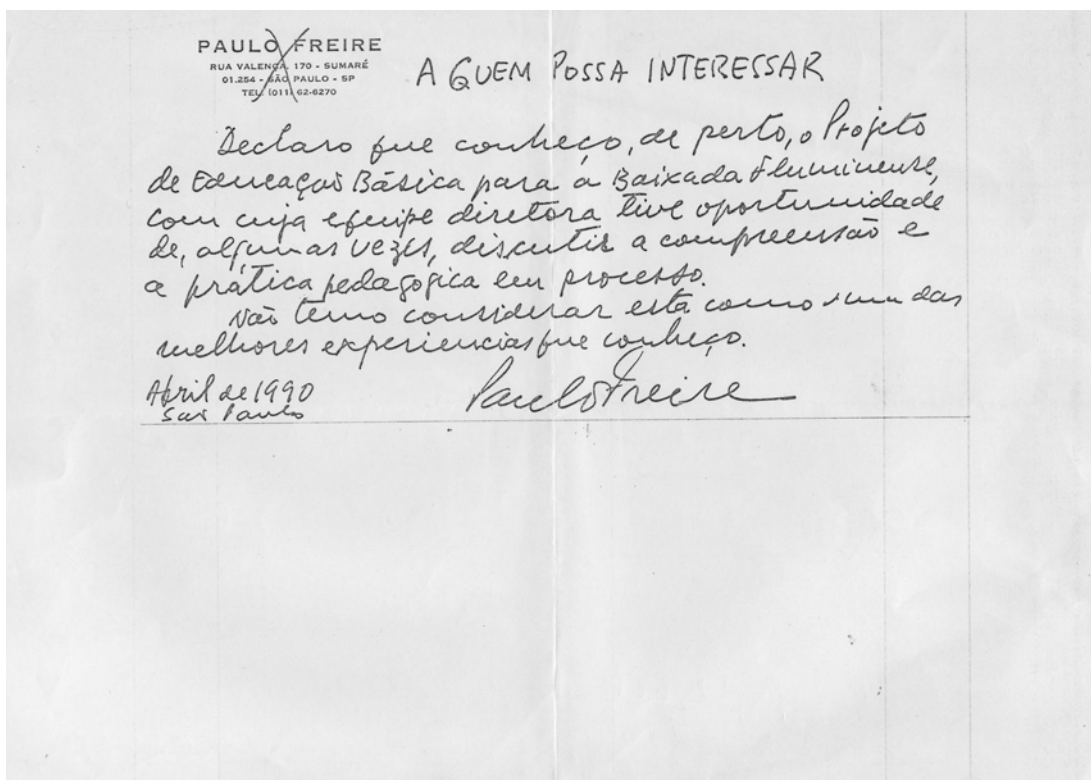 PAULO FREIRE
RUA VALENÇA, 170 - SUMARÉ
01.254 - SÃO PAULO - SP
TEL. (011) 62-6270
A QUEM POSSA INTERESSAR
Declaro que conheço, de perto, o Projeto
de Educação Básica para a Baixada Fluminense,
com cuja equipe diretora tive oportunidade
de, algumas vezes, discutir a compreensão e
a prática pedagógica em processo.
Não temo considerar esta como uma das
melhores experiencias que conheço.
Abril de 1990
São Paulo
Paulo Freire